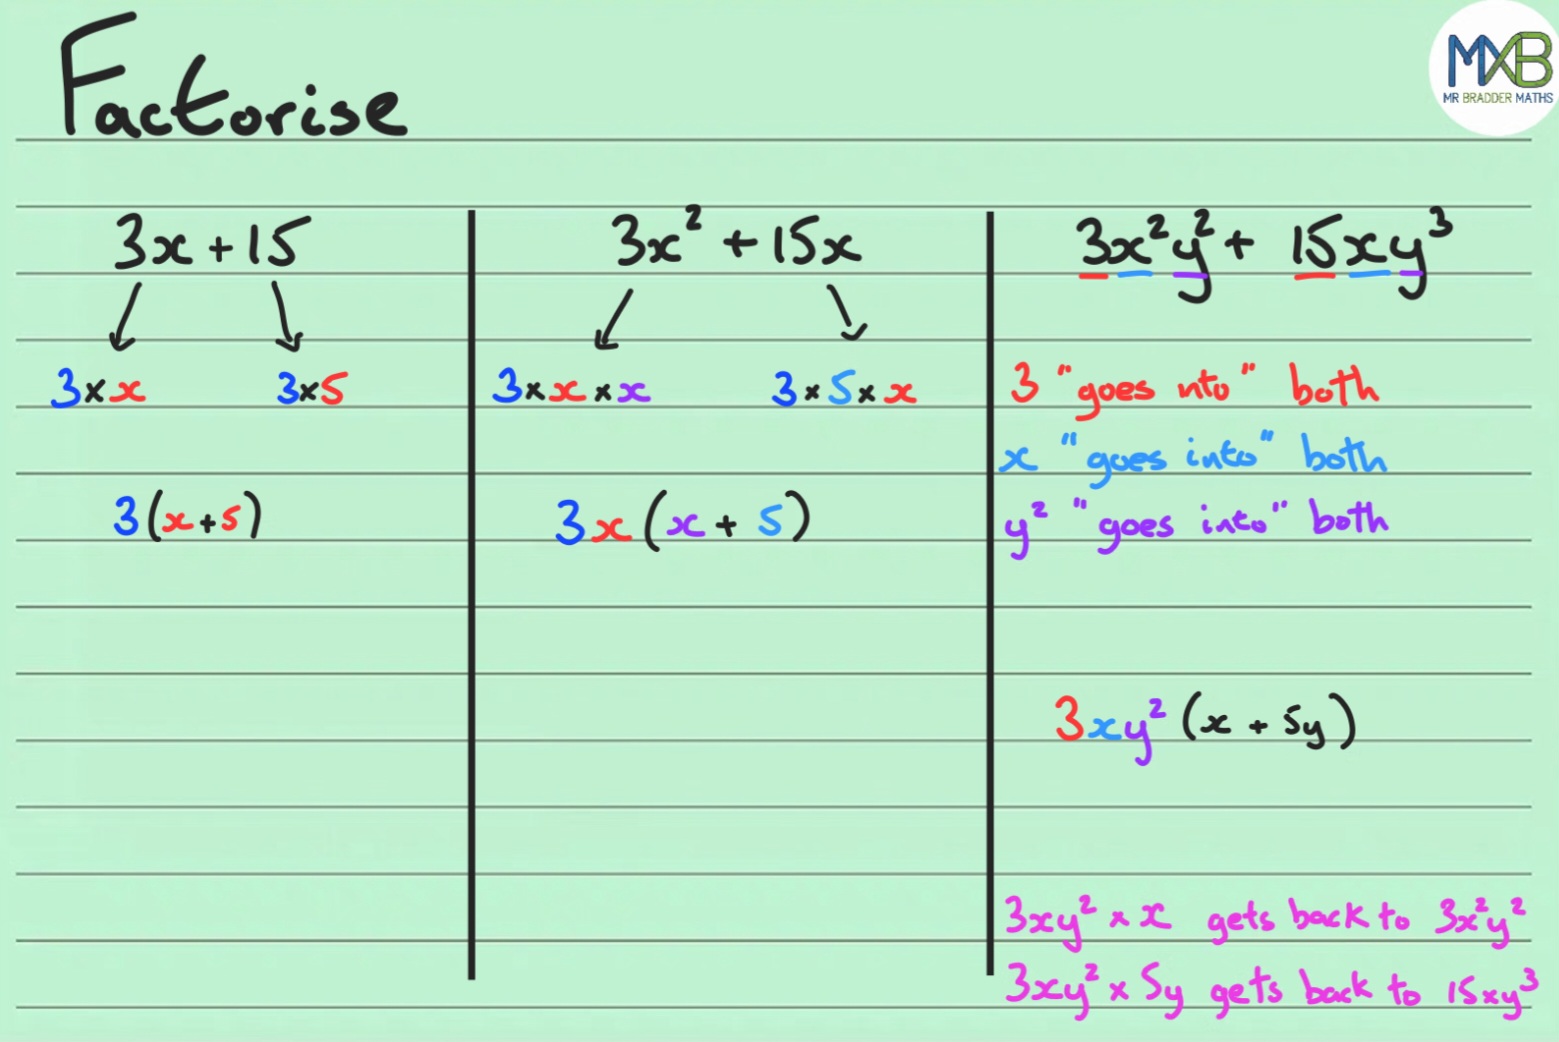 Factorise
MXB
MR BRADDER MATHS
3x + 15
3 × x 3 × 5
3(x + 5)
3x² + 15x
3 × x × x 3 × 5 × x
3x(x + 5)
3x²y² + 15xy³
3 "goes into" both
x "goes into" both
y² "goes into" both
3xy²(x + 5y)
3xy² × x gets back to 3x²y²
3xy² × 5y gets back to 15xy³